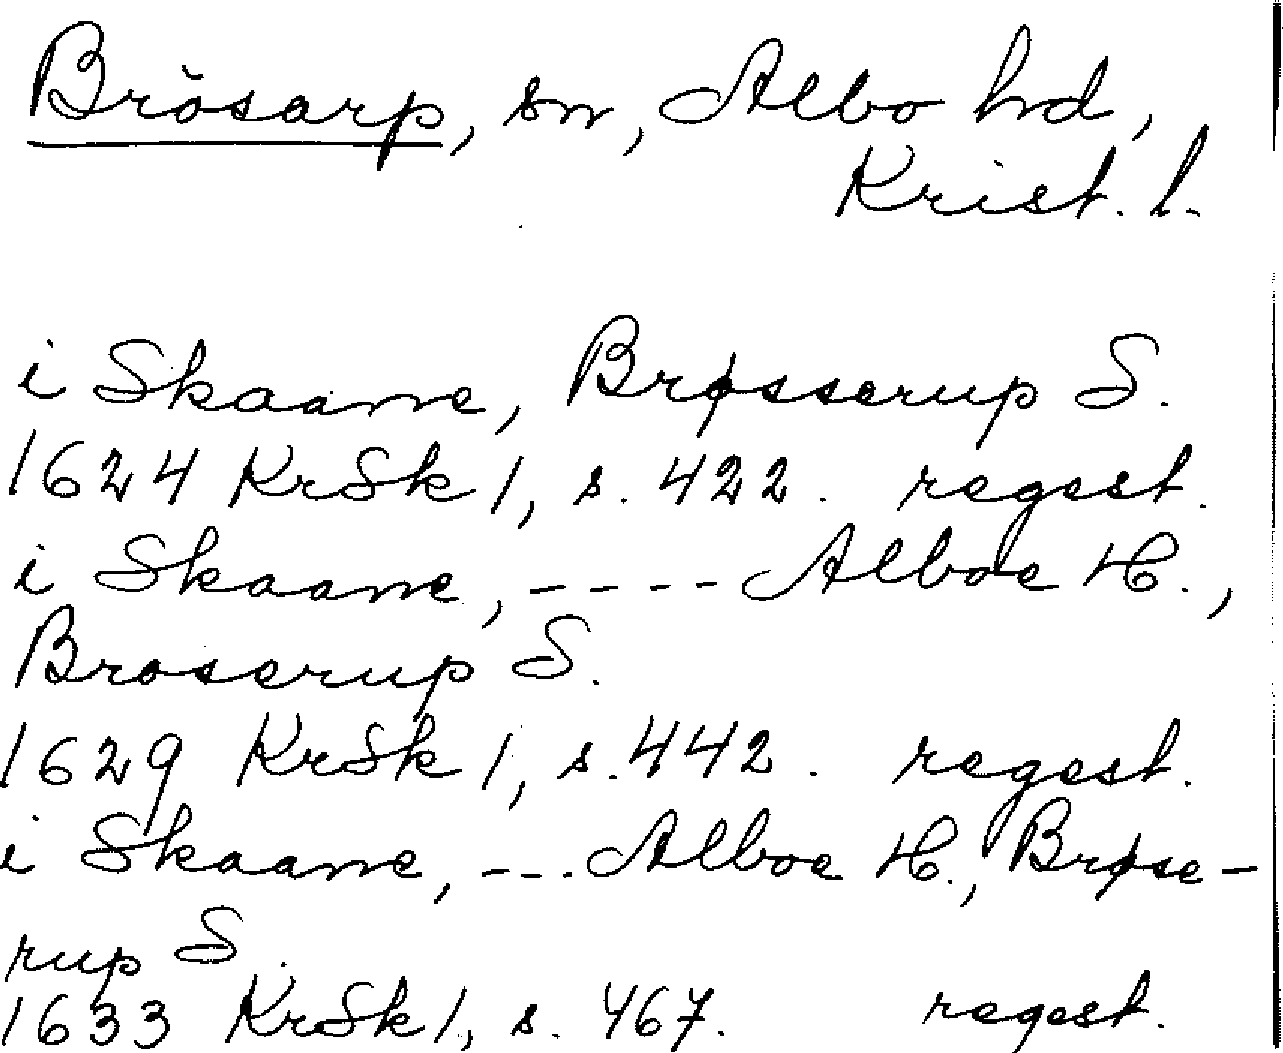 Brösarp, sn, Albo hd,
Krist. l.
i Skaane, Brøsserup S.
1624 KrSk 1, s. 422. regest.
i Skaane, ---- Alboe H.,
Broserup S.
1629 KrSk 1, s. 442. regest.
i Skaane, --- Alboe H., Brøse-
rup S.
1633 KrSk 1, s. 467. regest.